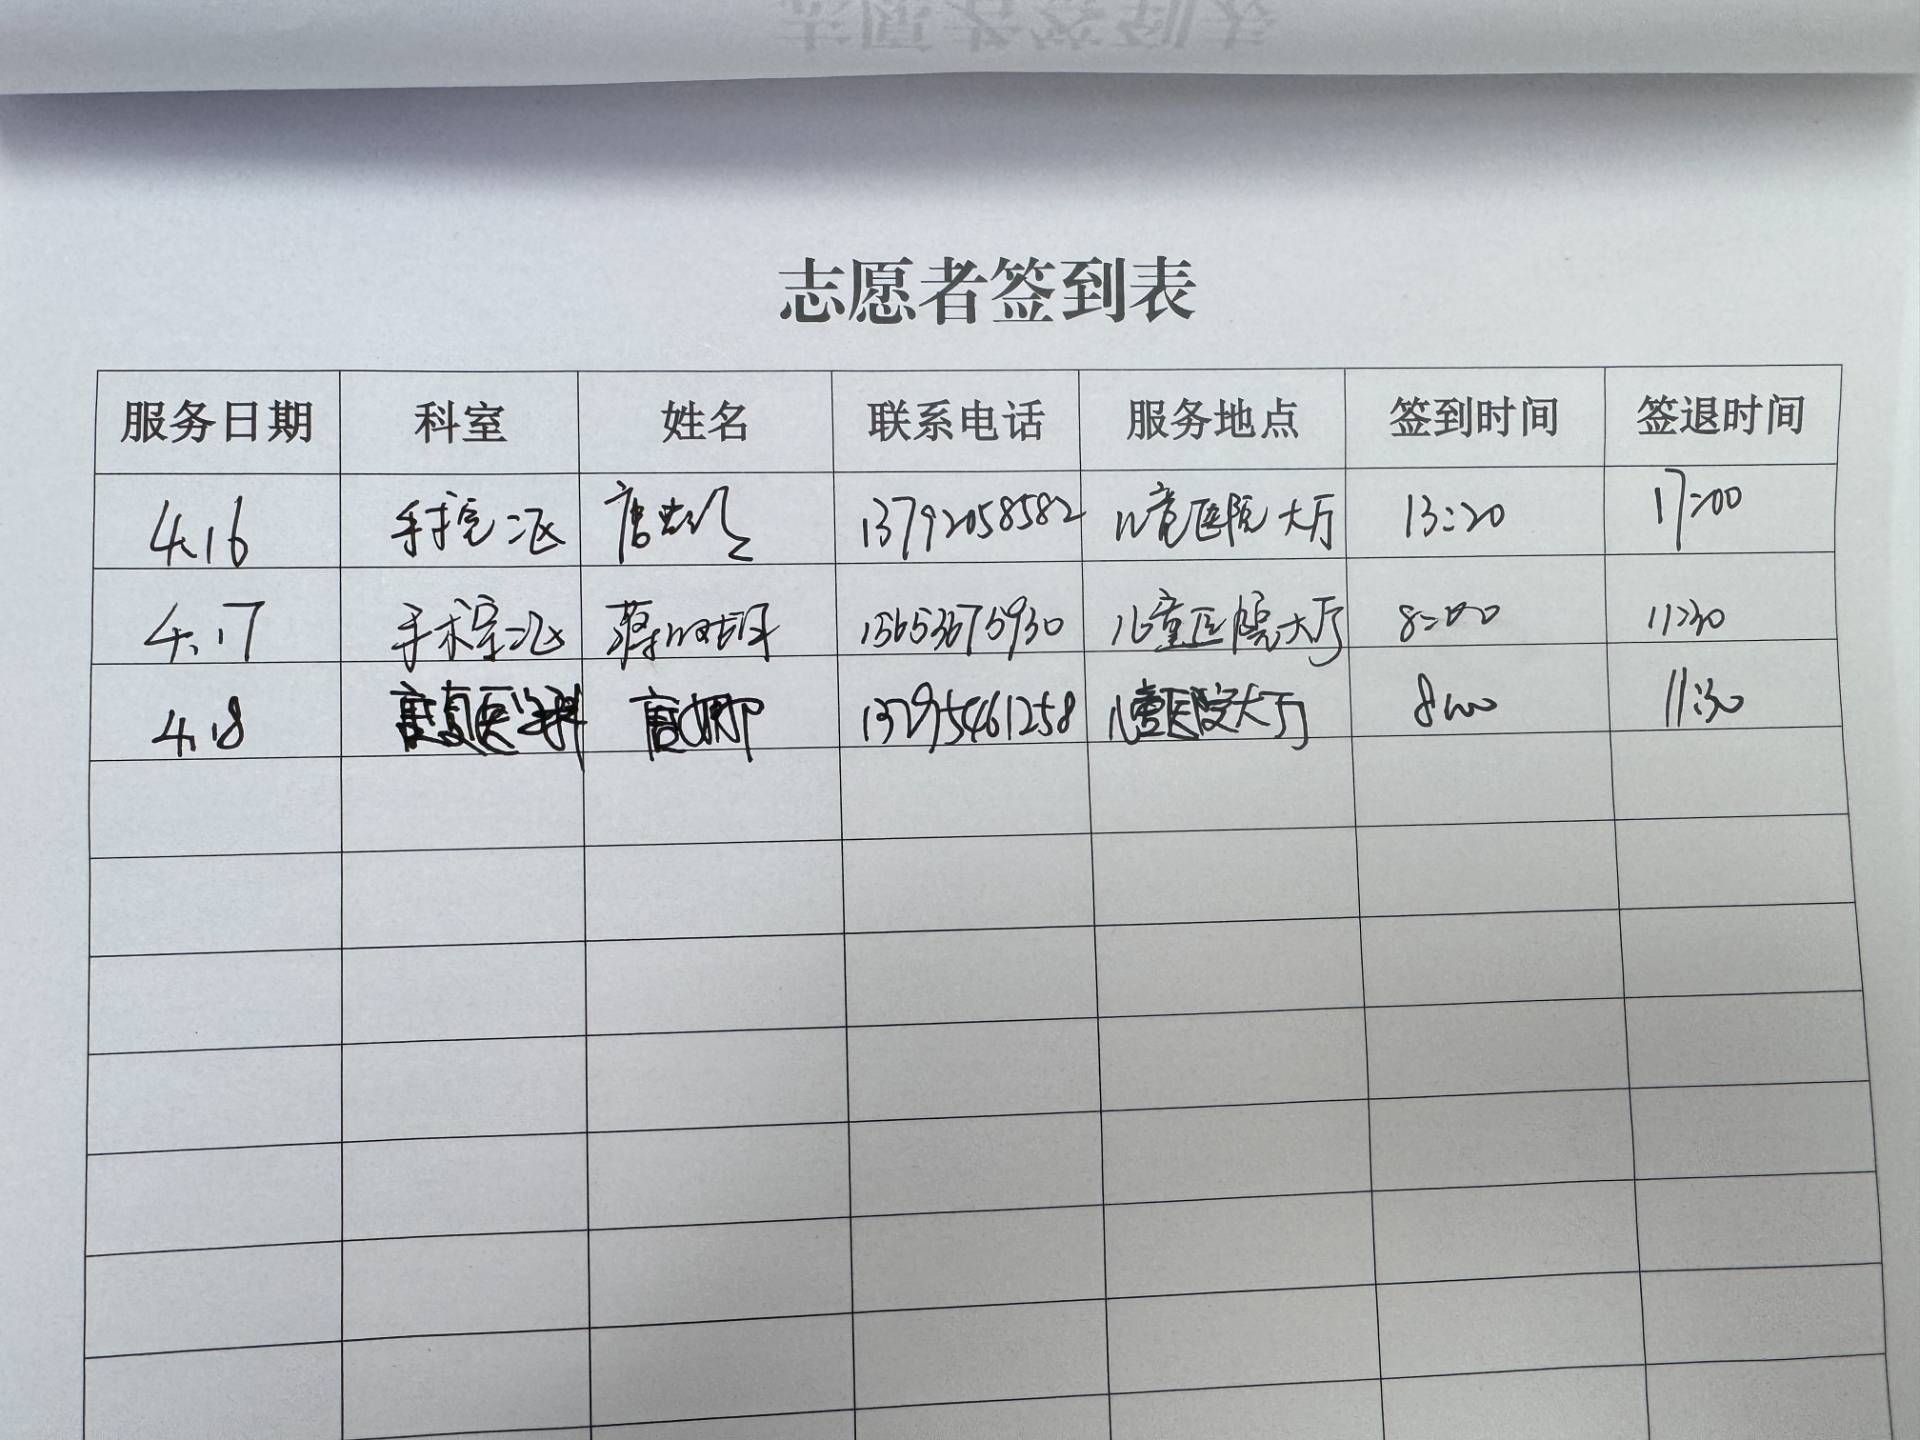 志愿者签到表
服务日期 科室 姓名 联系电话 服务地点 签到时间 签退时间
4.16 手术室二区 唐 13792058582 儿童医院大厅 13:20 17:00
4.17 手术室二区 蒋 15653675930 儿童医院大厅 8:00 11:30
4.18 康复医学科 唐娜 13795461258 儿童医院大厅 8:00 11:30